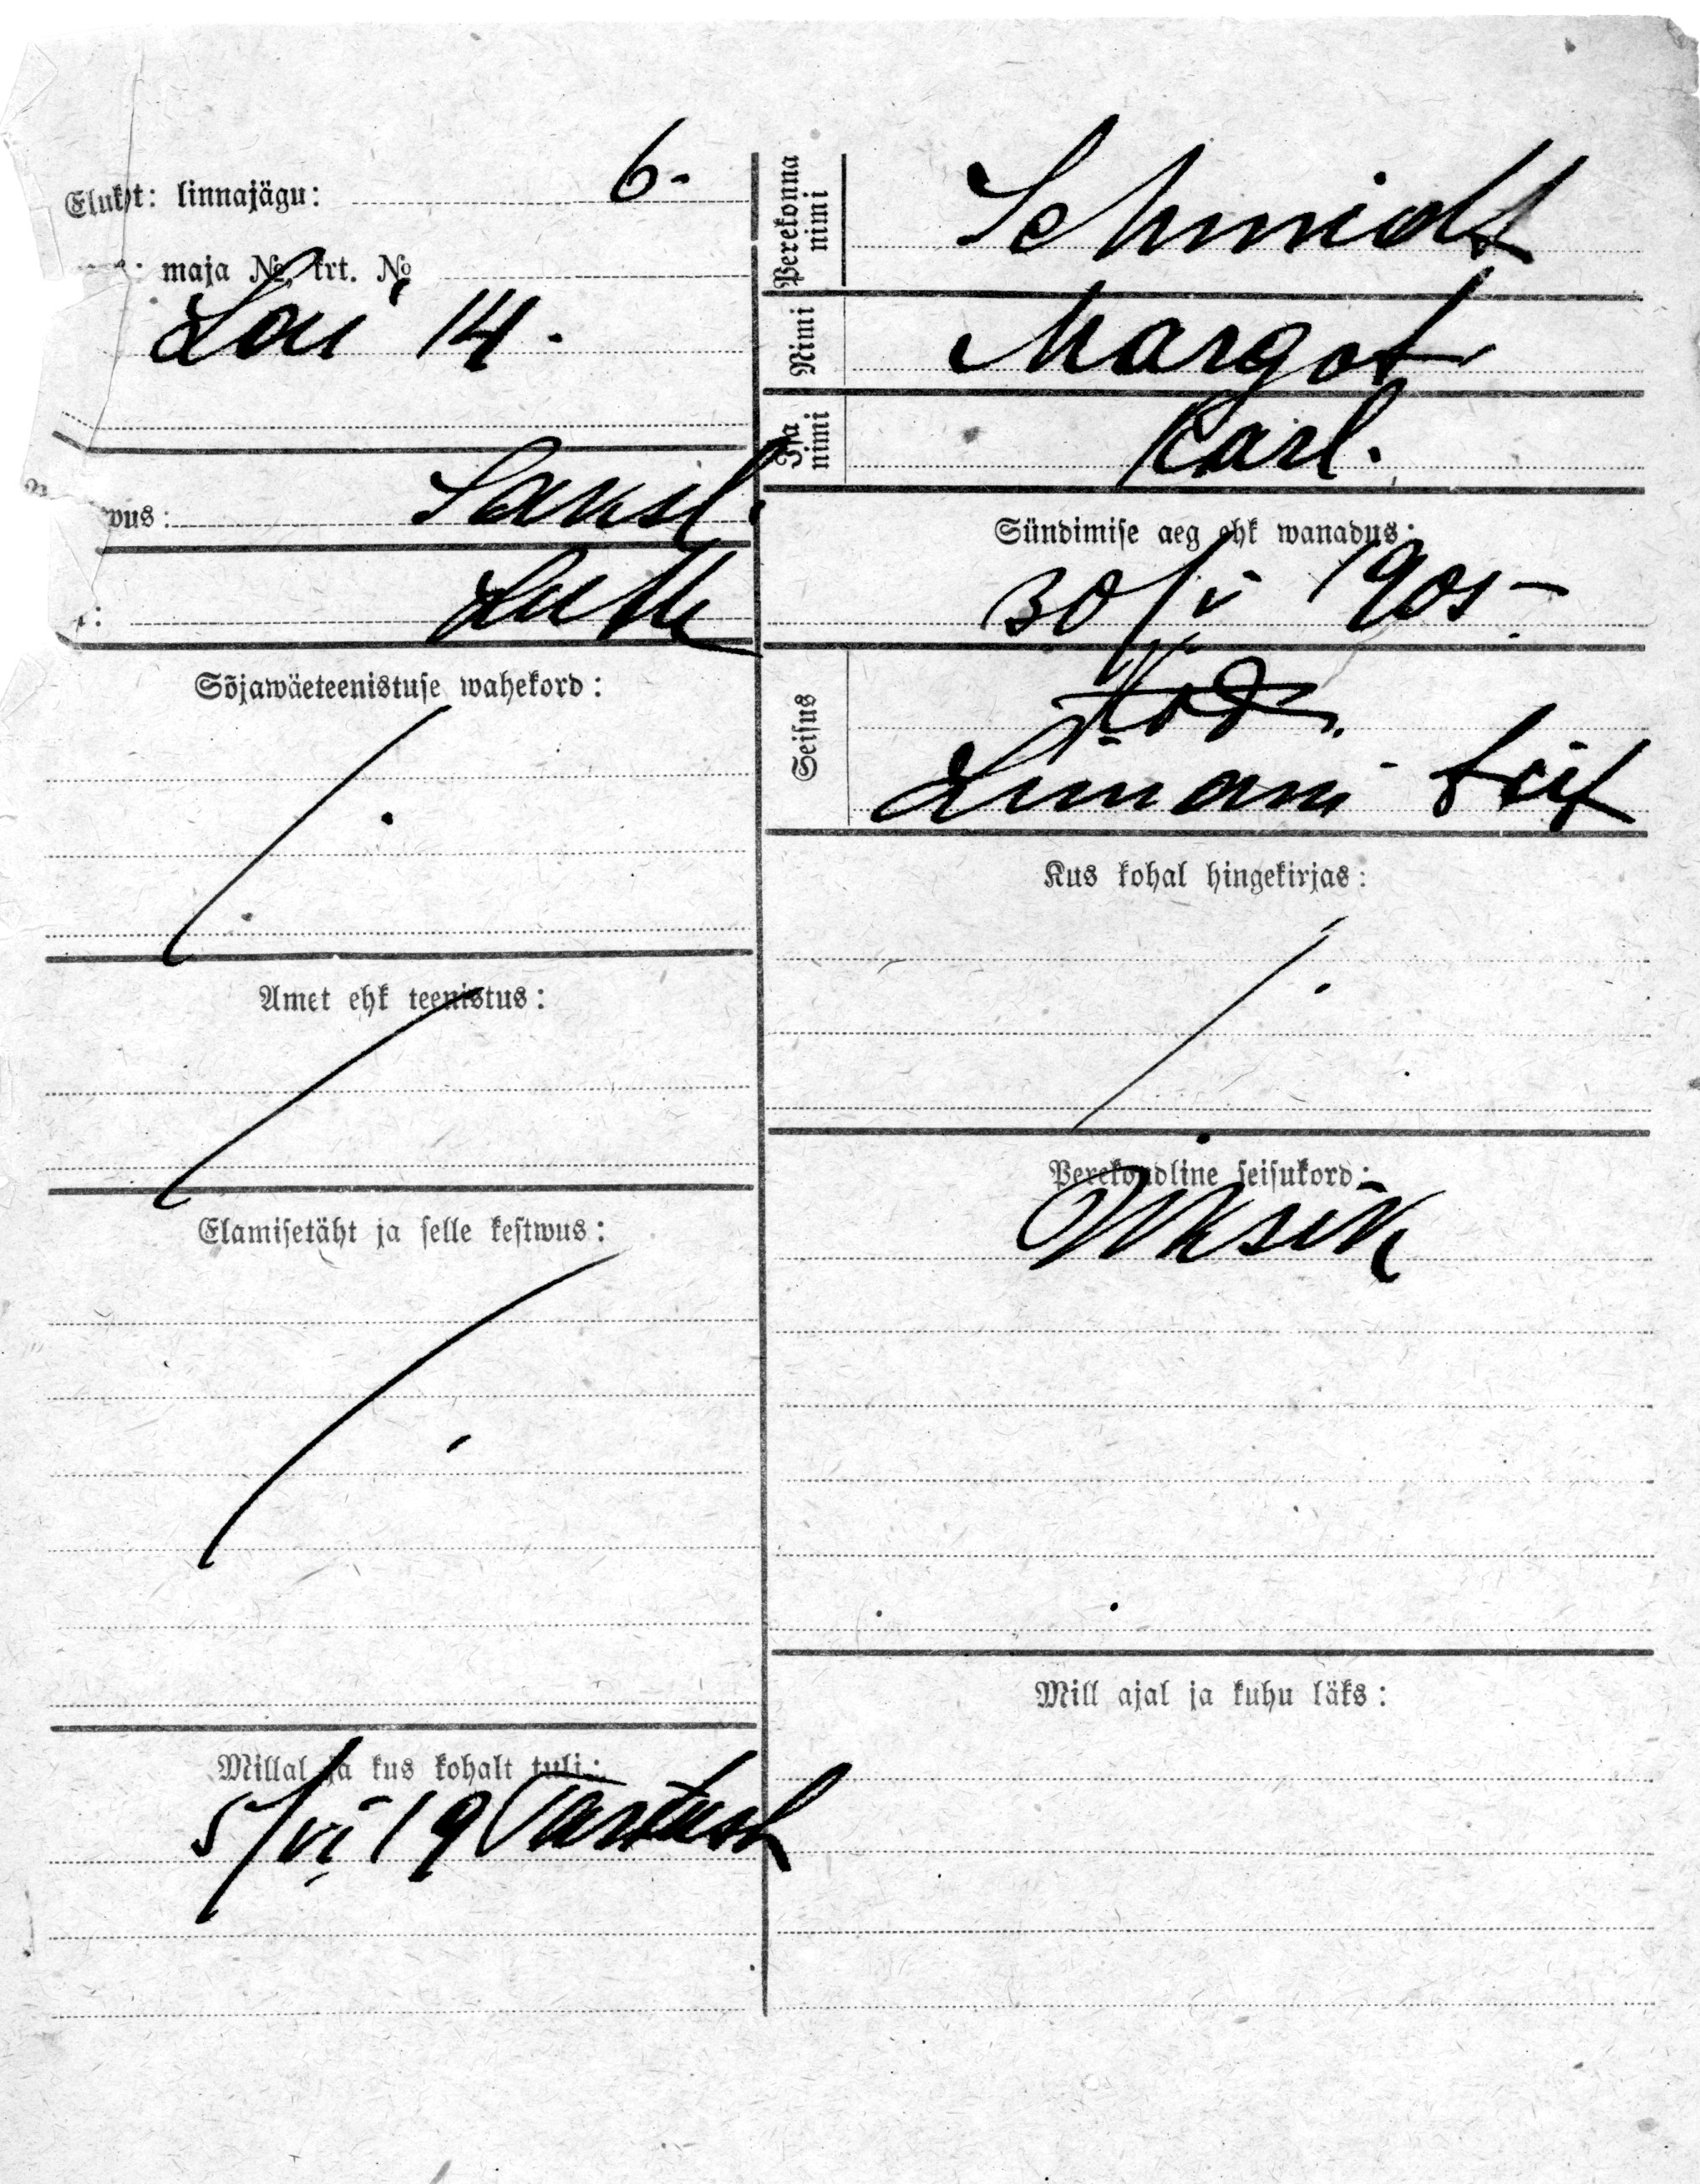 Elukst: linnajägu: 6.
: maja №, krt. №
Lai 14.
wus: Saksl.
: Luth
Sõjawäeteenistuse wahekord:
Amet ehk teenistus:
Elamisetäht ja selle kestwus:
Millal ja kus kohalt tuli:
5/VI 19 Tartust
Perekonna nimi Schmidt
Nimi Margot
Isa nimi Karl.
Sündimise aeg ehk wanadus:
30/V 1905
Seisus
Kus kohal hingekirjas:
Perekondline seisukord:
Üksik
Mill ajal ja kuhu läks: